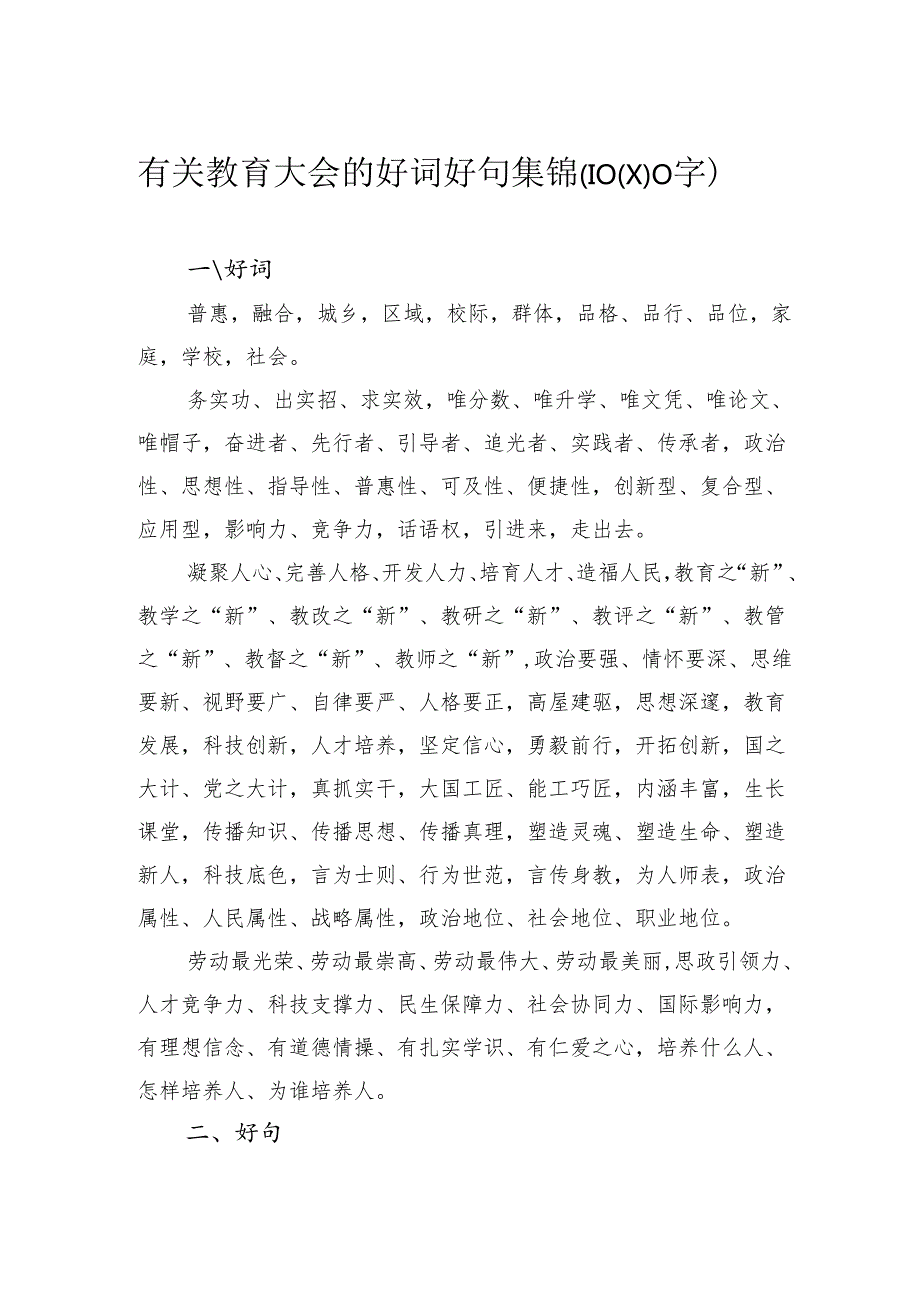 有关教育大会的好词好句集锦(IO(X)O字)
一\好词
普惠，融合，城乡，区域，校际，群体，品格、品行、品位，家
庭，学校，社会。
务实功、出实招、求实效，唯分数、唯升学、唯文凭、唯论文、
唯帽子，奋进者、先行者、引导者、追光者、实践者、传承者，政治
性、思想性、指导性、普惠性、可及性、便捷性，创新型、复合型、
应用型，影响力、竞争力，话语权，引进来，走出去。
凝聚人心、完善人格、开发人力、培育人才、造福人民，教育之“新”、
教学之“新”、教改之“新”、教研之“新”、教评之“新”、教管
之“新”、教督之“新”、教师之“新”,政治要强、情怀要深、思维
要新、视野要广、自律要严、人格要正，高屋建驱，思想深邃，教育
发展，科技创新，人才培养，坚定信心，勇毅前行，开拓创新，国之
大计、党之大计，真抓实干，大国工匠、能工巧匠，内涵丰富，生长
课堂，传播知识、传播思想、传播真理，塑造灵魂、塑造生命、塑造
新人，科技底色，言为士则、行为世范，言传身教，为人师表，政治
属性、人民属性、战略属性，政治地位、社会地位、职业地位。
劳动最光荣、劳动最崇高、劳动最伟大、劳动最美丽,思政引领力、
人才竞争力、科技支撑力、民生保障力、社会协同力、国际影响力，
有理想信念、有道德情操、有扎实学识、有仁爱之心，培养什么人、
怎样培养人、为谁培养人。
二、好句